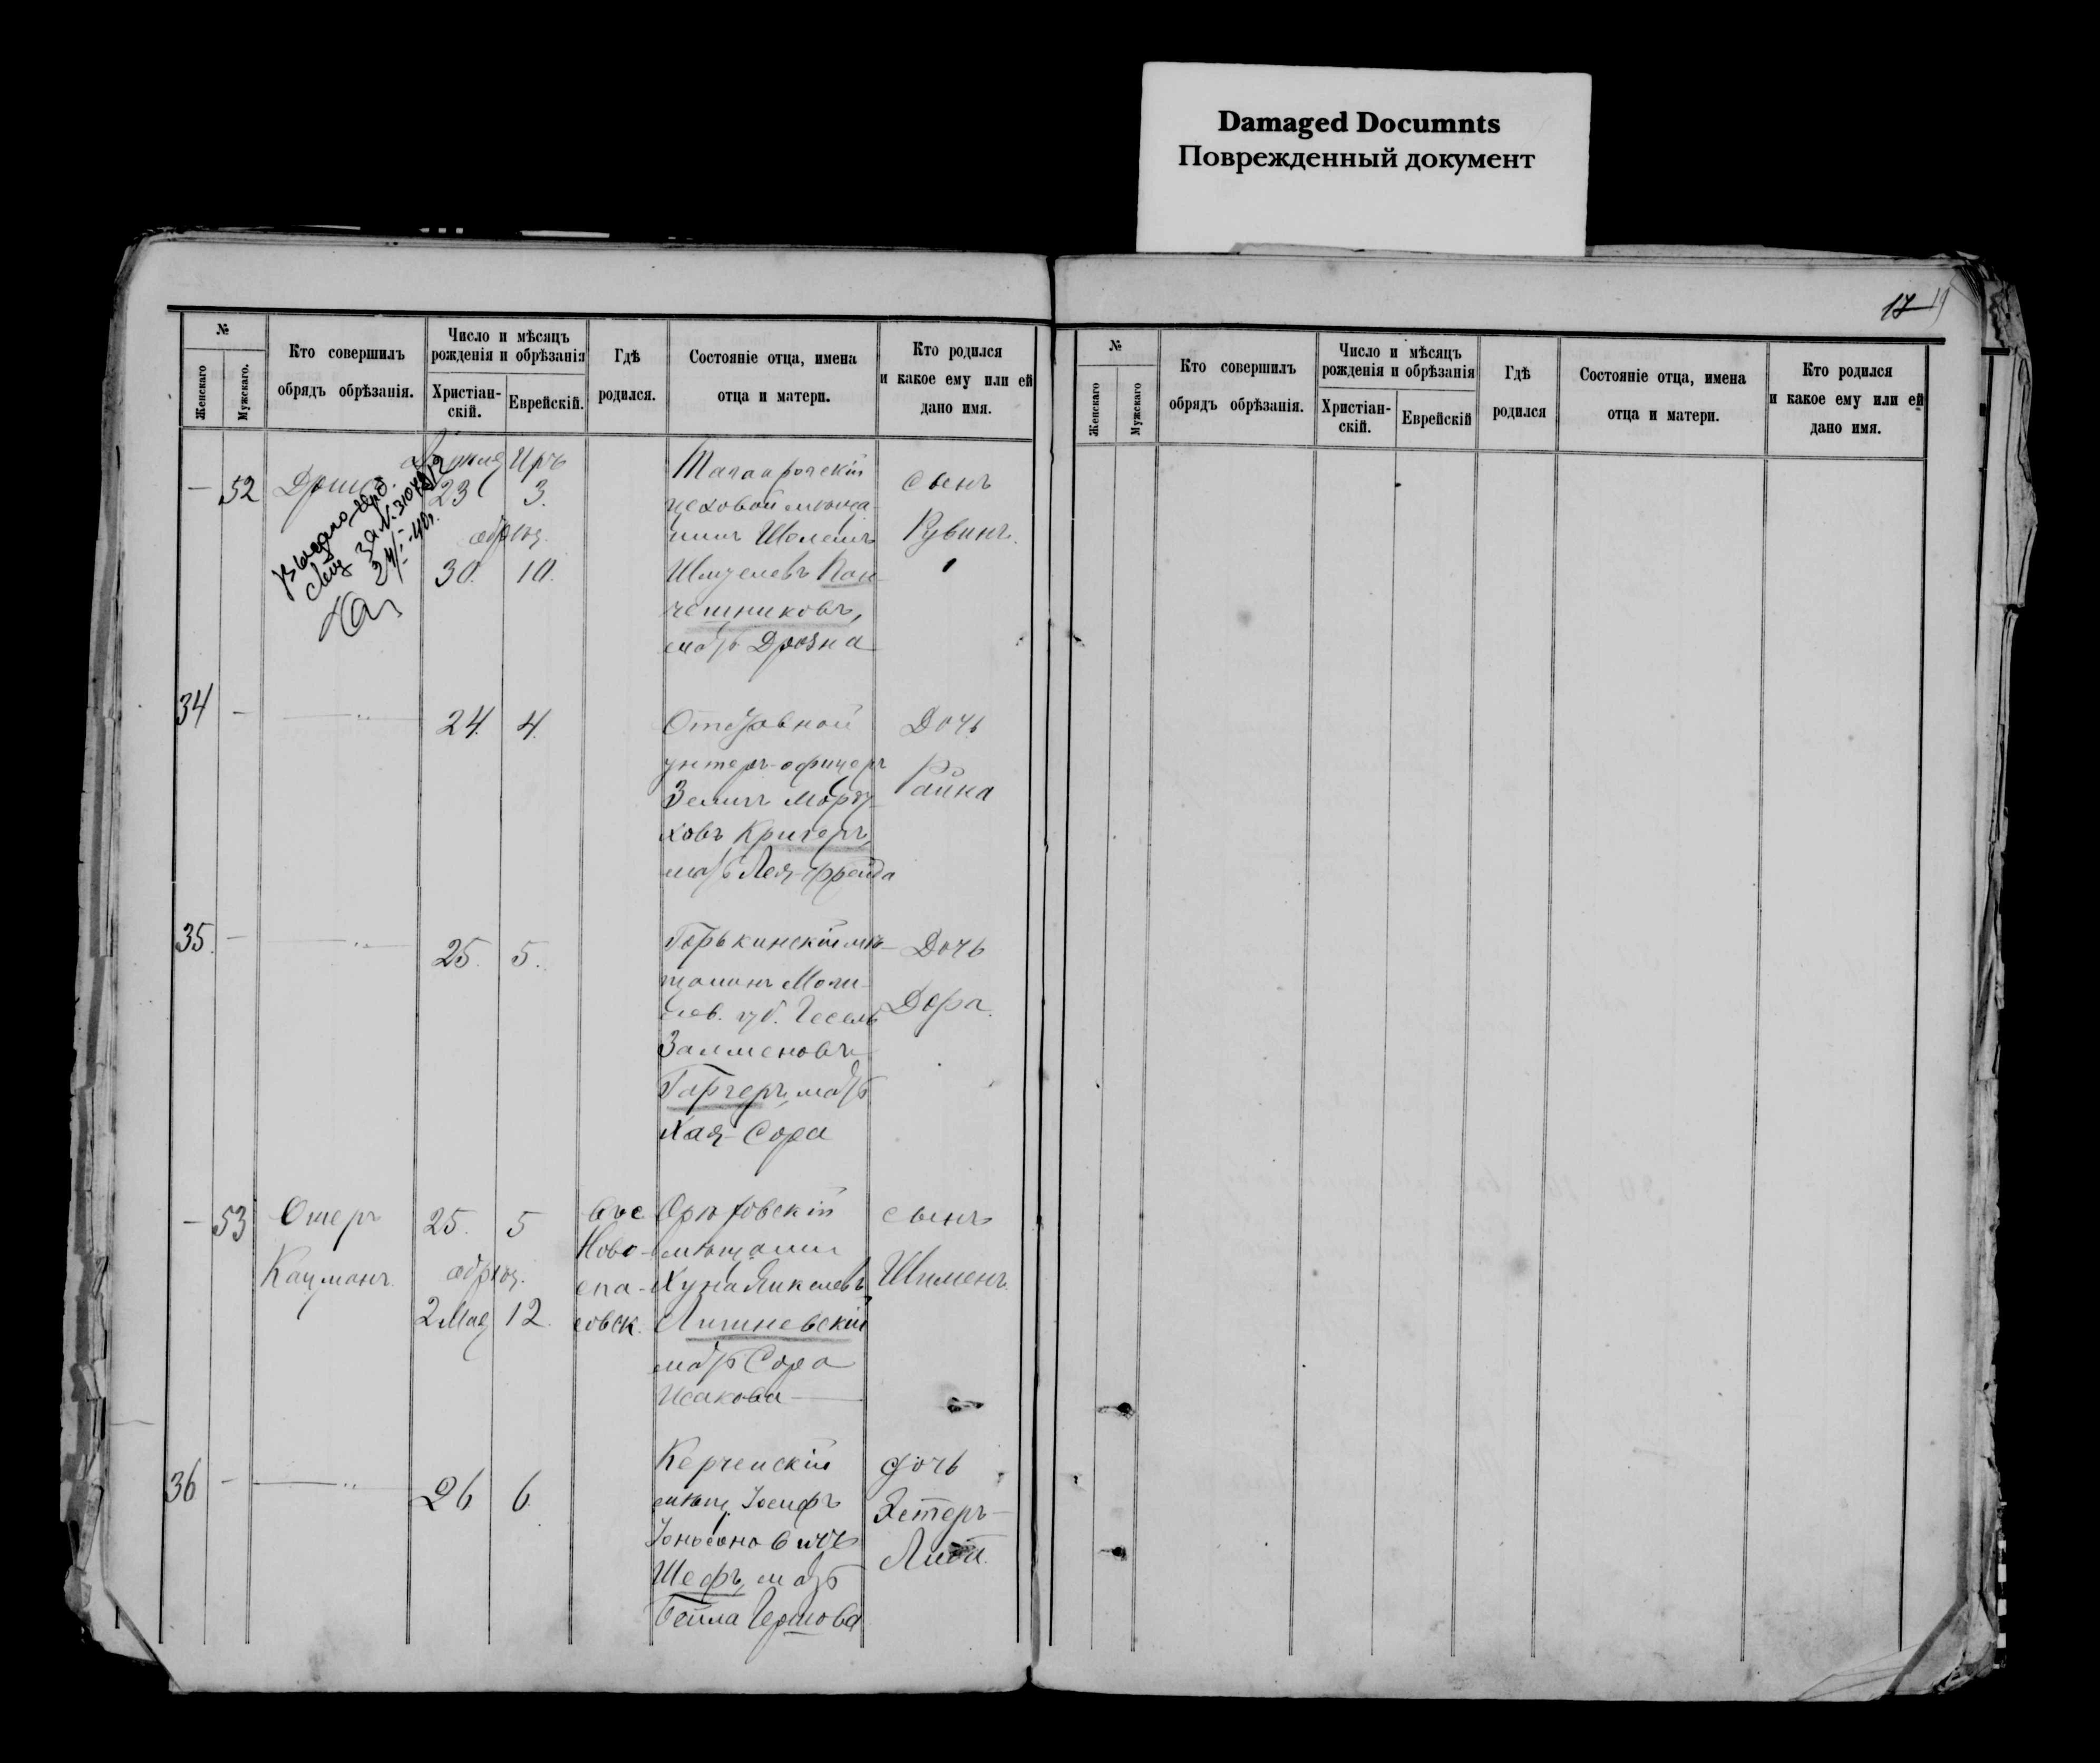 Damaged Documnts
Поврежденный документ
17
№
Женскаго
Мужскаго.
Кто совершилъ
обрядъ обрѣзанія.
Число и мѣсяцъ
рожденія и обрѣзанія
Христіан-
скій.
Еврейскій.
Гдѣ
родился.
Состояніе отца, имена
отца и матери.
Кто родился
и какое ему или ей
дано имя.
— 52
23 3.
обрѣз.
30. 10.
Таганрогскій
цеховой мѣща-
нинъ
Шмулевъ
чешниковъ,
мать
сынъ
Рувинъ.
34 —
24. 4.
унтеръ-офицеръ
ЗеликъМорду-
ховъ Кригеръ,
мать Лея-Фрейда
Дочь
Райна
35. —
25. 5.
Горькинскій мѣ-
щанинъ Моги-
лев. губ. Гесель
Залменовъ
Гаргеръ, мать
Хая-Сора
Дочь
Дора.
— 53
Ошеръ
Кацманъ.
25. 5
обрѣз.
2 Мая 12.
въ с
Ново-
спа-
совск.
Орѣховскій
мѣщанин
Хуна
Лишневскій
мать Сора
Исакова
сынъ
Шименъ.
36 —
26 6.
Керченскій
мѣщ. Іосифъ
Шефъ, мать
Бейла Гершова
дочь
Эстеръ-
№
Женскаго
Мужскаго
Кто совершилъ
обрядъ обрѣзанія.
Число и мѣсяцъ
рожденія и обрѣзанія
Христіан-
скій.
Еврейскій
Гдѣ
родился
Состояніе отца, имена
отца и матери.
Кто родился
и какое ему или ей
дано имя.